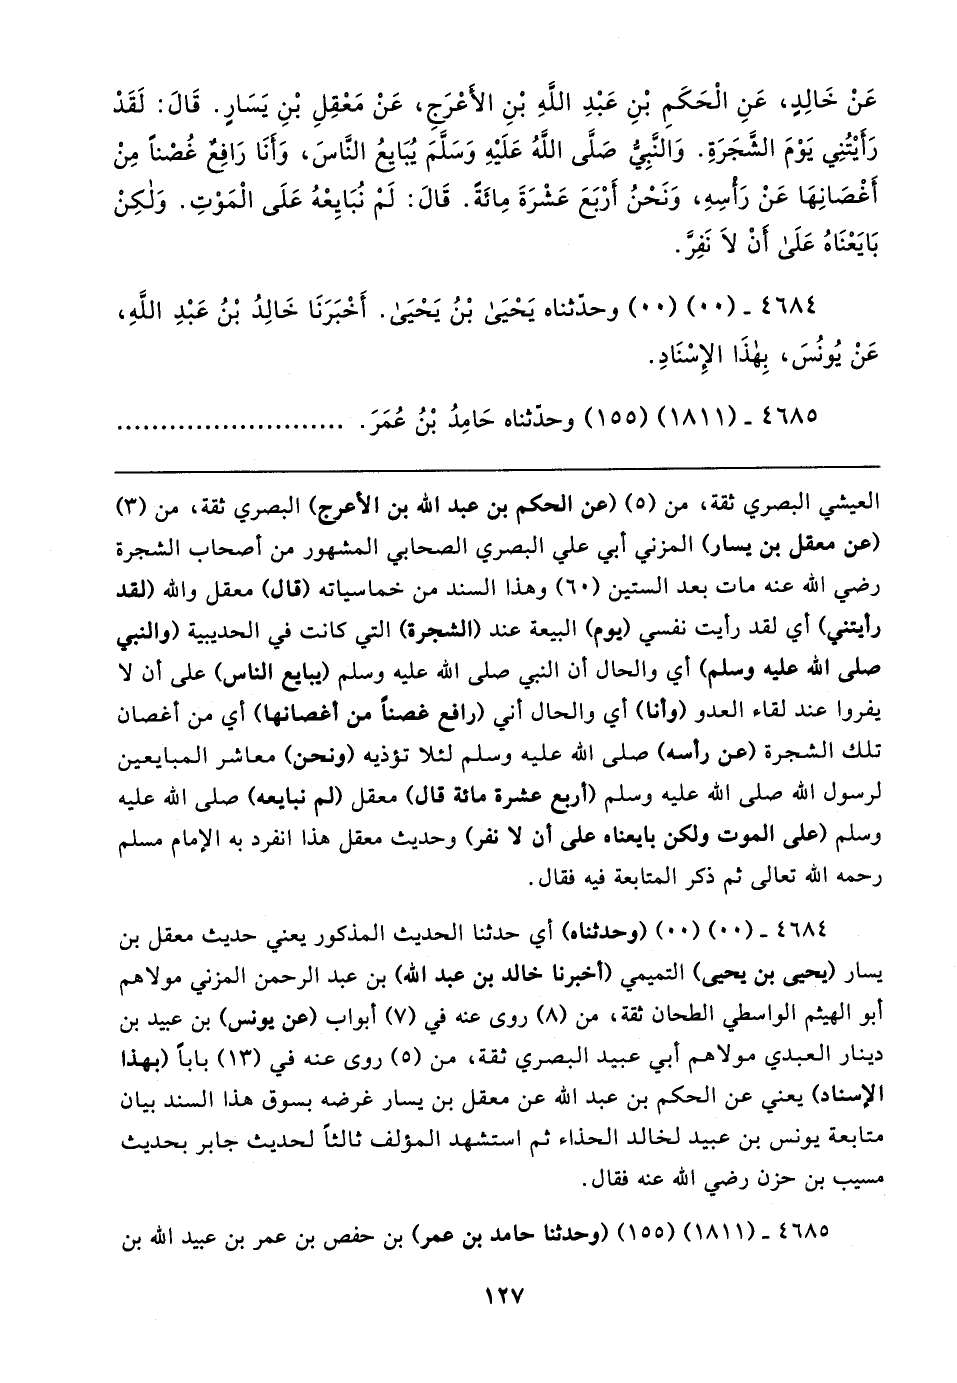 عَنْ خَالِدٍ، عَنِ الْحَكَمِ بْنِ عَبْدِ اللَّهِ بْنِ الأَعْرَجِ، عَنْ مَعْقِلِ بْنِ يَسَارٍ. قَالَ: لَقَدْ
رَأَيْتُنِي يَوْمَ الشَّجَرَةِ. وَالنَّبِيُّ صَلَّى اللَّهُ عَلَيْهِ وَسَلَّمَ يُبَايِعُ النَّاسَ، وَأَنَا رَافِعٌ غُصْناً مِنْ
أَغْصَانِهَا عَنْ رَأْسِهِ، وَنَحْنُ أَرْبَعَ عَشْرَةَ مِائَةً. قَالَ: لَمْ نُبَايِعْهُ عَلَى الْمَوْتِ. وَلٰكِنْ
بَايَعْنَاهُ عَلَىٰ أَنْ لاَ نَفِرَّ.
٤٦٨٤ ـ (٠٠) (٠٠) وحدّثناه يَحْيَىٰ بْنُ يَحْيَىٰ. أَخْبَرَنَا خَالِدُ بْنُ عَبْدِ اللَّهِ،
عَنْ يُونُسَ، بِهٰذَا الإِسْنَادِ.
٤٦٨٥ ـ (١٨١١) (١٥٥) وحدّثناه حَامِدُ بْنُ عُمَرَ. ..........................
العيشي البصري ثقة، من (٥) (عن الحكم بن عبد الله بن الأعرج) البصري ثقة، من (٣)
(عن معقل بن يسار) المزني أبي علي البصري الصحابي المشهور من أصحاب الشجرة
رضي الله عنه مات بعد الستين (٦٠) وهذا السند من خماسياته (قال) معقل والله (لقد
رأيتني) أي لقد رأيت نفسي (يوم) البيعة عند (الشجرة) التي كانت في الحديبية (والنبي
صلى الله عليه وسلم) أي والحال أن النبي صلى الله عليه وسلم (يبايع الناس) على أن لا
يفروا عند لقاء العدو (وأنا) أي والحال أني (رافع غصناً من أغصانها) أي من أغصان
تلك الشجرة (عن رأسه) صلى الله عليه وسلم لئلا تؤذيه (ونحن) معاشر المبايعين
لرسول الله صلى الله عليه وسلم (أربع عشرة مائة قال) معقل (لم نبايعه) صلى الله عليه
وسلم (على الموت ولكن بايعناه على أن لا نفر) وحديث معقل هذا انفرد به الإمام مسلم
رحمه الله تعالى ثم ذكر المتابعة فيه فقال.
٤٦٨٤ ـ (٠٠) (٠٠) (وحدثناه) أي حدثنا الحديث المذكور يعني حديث معقل بن
يسار (يحيى بن يحيى) التميمي (أخبرنا خالد بن عبد الله) بن عبد الرحمن المزني مولاهم
أبو الهيثم الواسطي الطحان ثقة، من (٨) روى عنه في (٧) أبواب (عن يونس) بن عبيد بن
دينار العبدي مولاهم أبي عبيد البصري ثقة، من (٥) روى عنه في (١٣) باباً (بهذا
الإسناد) يعني عن الحكم بن عبد الله عن معقل بن يسار غرضه بسوق هذا السند بيان
متابعة يونس بن عبيد لخالد الحذاء ثم استشهد المؤلف ثالثاً لحديث جابر بحديث
مسيب بن حزن رضي الله عنه فقال.
٤٦٨٥ ـ (١٨١١) (١٥٥) (وحدثنا حامد بن عمر) بن حفص بن عمر بن عبيد الله بن
١٢٧